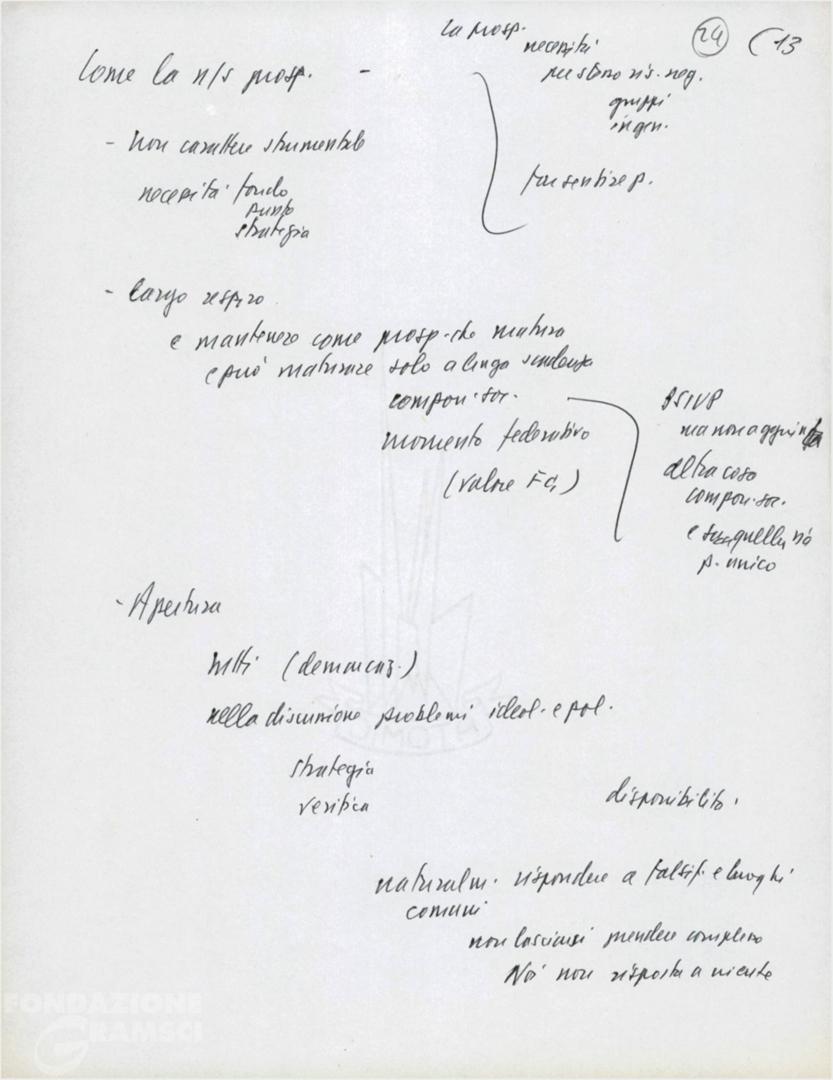 24 (13
Come la n/s prosp. -
La prosp.
necessità
per stero ris. neg.
gruppi
ingen.
far sentire p.
- Non carattere strumentale
necessità fondo
punto
strategia
- largo respiro
e mantenere come prosp. che matura
e può maturare solo a lunga scadenza
compon. soc.
momento federativo
(valore FG)
PSIUP
ma non aggiunta
altra cosa
compon. soc.
e quella
p. unico
- Apertura
tutti (demarcaz.)
nella discussione problemi ideol. e pol.
strategia
verifica
disponibilità.
naturalm. rispondere a falsif. e luoghi
comuni
non lasciarsi prendere complesso
Noi non risposta a niente
FONDAZIONE
GRAMSCI